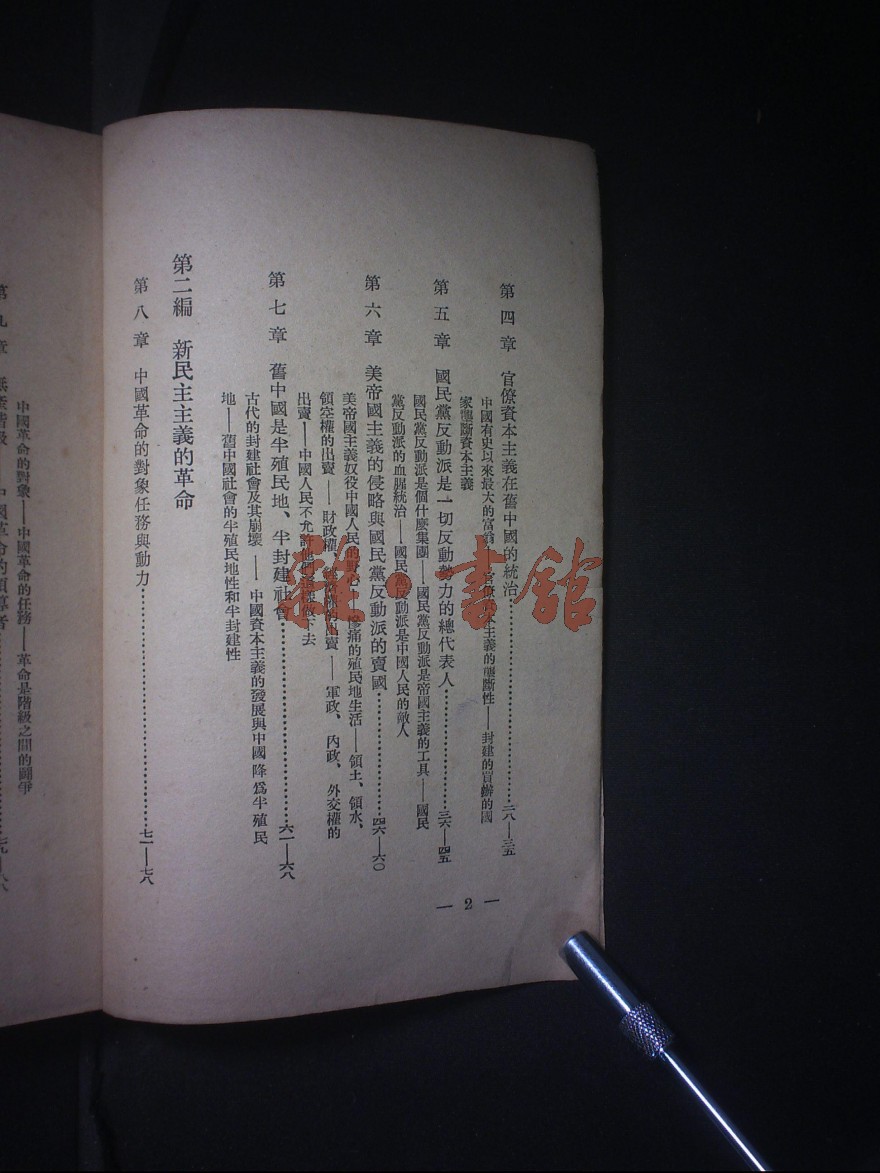 第四章 官僚資本主義在舊中國的統治…………二八—三五
中國有史以來最大的富翁 官僚資本主義的壟斷性——封建的買辦的國
家壟斷資本主義
第五章 國民黨反動派是一切反動勢力的總代表人…………三六—四五
國民黨反動派是個什麼集團——國民黨反動派是帝國主義的工具——國民
黨反動派的血腥統治——國民黨反動派是中國人民的敵人
第六章 美帝國主義的侵略與國民黨反動派的賣國…………四六—六〇
美帝國主義奴役中國人民的野心 慘痛的殖民地生活——領土、領水、
領空權的出賣——財政權、 的出賣——軍政、內政、外交權的
出賣——中國人民不允許他們 下去
第七章 舊中國是半殖民地、半封建社會…………六一—六八
古代的封建社會及其崩壞——中國資本主義的發展與中國降爲半殖民
地——舊中國社會的半殖民地性和半封建性
第二編 新民主主義的革命
第八章 中國革命的對象任務與動力…………七一—七八
— 2 —
中國革命的對象——中國革命的任務——革命是階級之間的鬪爭
第九章 無產階級 中國革命的領導者…………七九—八八
雅·書館